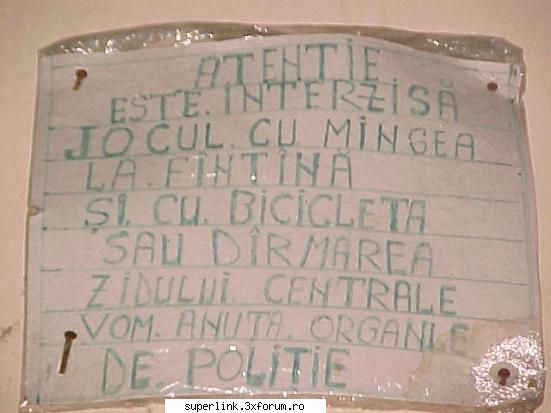 ATENTIE
ESTE. INTERZISĂ
JOCUL. CU. MINGEA
LA. FINTÎNA
ȘI. CU. BICICLETA
SAU DÎRMAREA
ZIDULUI. CENTRALE
VOM. ANUTA. ORGANLE
DE. POLITIE
superlink.3xforum.ro